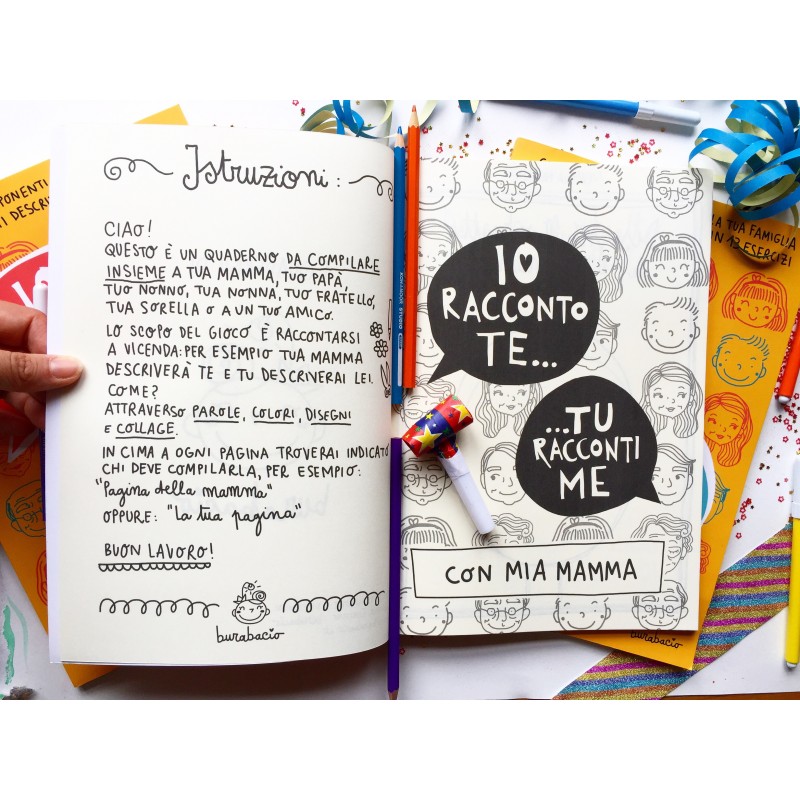 Istruzioni:
CIAO!
QUESTO È UN QUADERNO DA COMPILARE
INSIEME A TUA MAMMA, TUO PAPÀ,
TUO NONNO, TUA NONNA, TUO FRATELLO,
TUA SORELLA O A UN TUO AMICO.
LO SCOPO DEL GIOCO È RACCONTARSI
A VICENDA: PER ESEMPIO TUA MAMMA
DESCRIVERÀ TE E TU DESCRIVERAI LEI.
COME?
ATTRAVERSO PAROLE, COLORI, DISEGNI
E COLLAGE.
IN CIMA A OGNI PAGINA TROVERAI INDICATO
CHI DEVE COMPILARLA, PER ESEMPIO:
"Pagina della mamma"
OPPURE: "La tua pagina"
BUON LAVORO!
burabacio
IO
RACCONTO
TE...
...TU
RACCONTI
ME
CON MIA MAMMA
PONENTI
TI DESCRIV
LA TUA FAMIGLIA
IN 13 ESERCIZI
burabacio
STUDIO